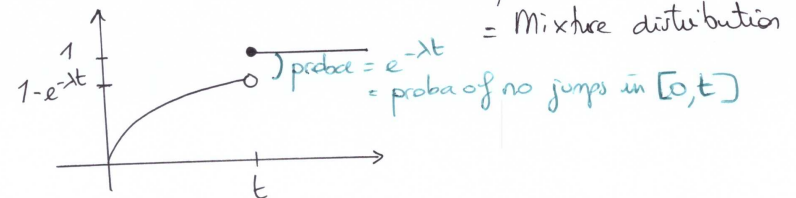 = Mixture distribution
1
proba = e^{-λt}
1-e^{-λt}
= proba of no jumps in [0,t]
t